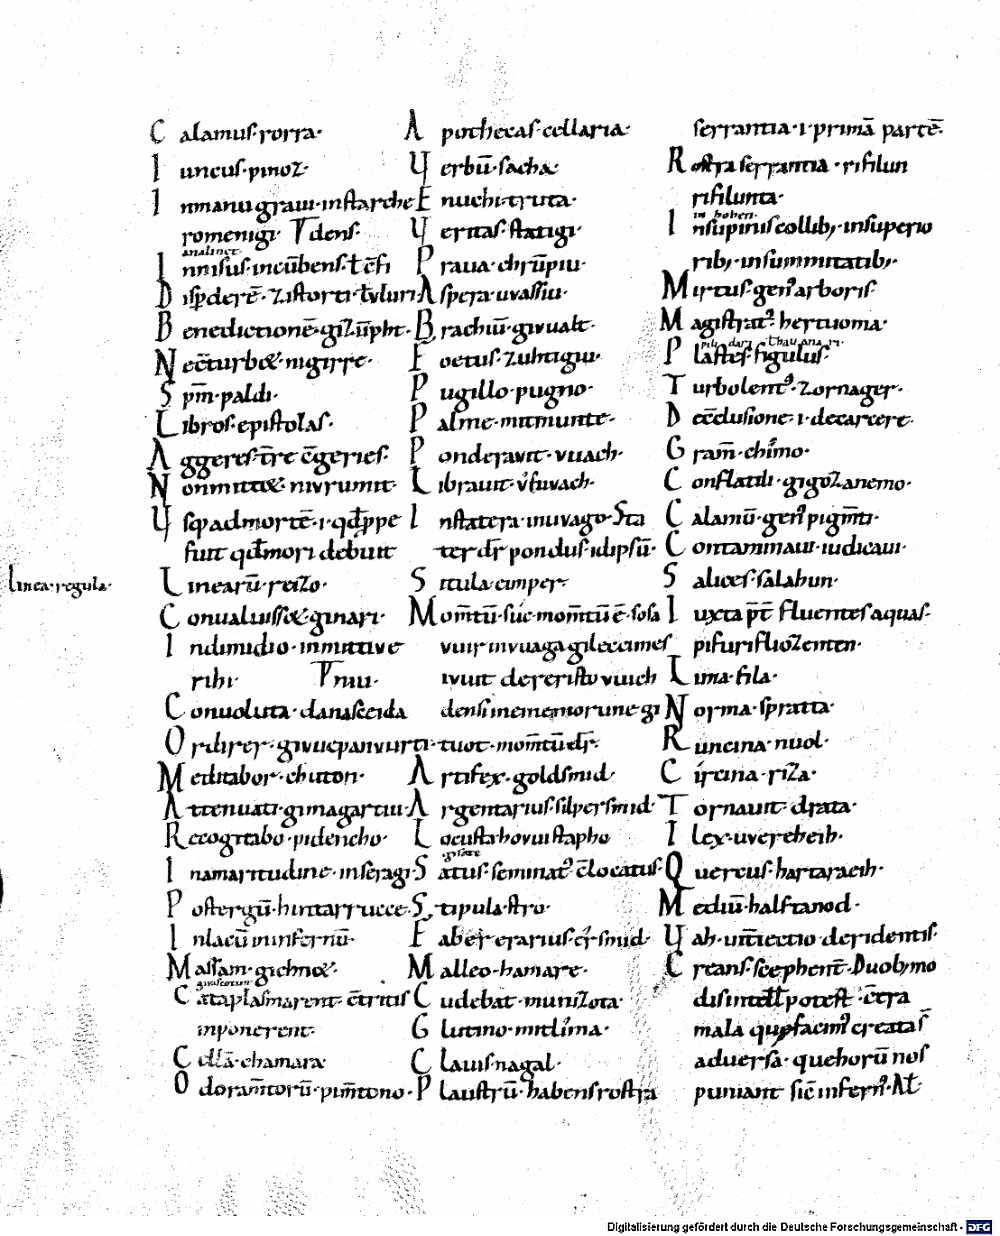 C alamuſ·rorra·
I uncuſ·pinoz·
I nmanu graui·inſtarche
romenigi· Tdenſ·
analinet·
I nniſuſ·incūbenſ·
D iſpderē·ziſtorti·
B enedictionē·
N ec̄turbo&·nigirre·
S pm̄·paldi·
L ibroſ·epiſtolaſ·
A ggereſ·tr̄e c̄gerieſ·
N onmitto&·nivrumit·
U ſqadmortē·i·
fuit qd̄mori debuit
Linea·regula·
L inearū·reizo·
C onualuiſſ&·ginari·
I ndimidio·inmittive
ribi· Tmu·
C onuoluta·danaſceida
O rdirer·
M editabor·chitton·
A ttenuati·gimagartiu·
R ecogitabo·pidencho·
I namaritudine·inſeragi·
P oſtergū·hintarrucce·
I nlacū ininfernū·
M aſſam·gichno&·
C ataplaſmarent·c̄tritiſ
inponerent·
C ellā·chamara
O doram̄torū·pim̄tono·
A pothecaſ·cellaria·
U erbū·ſacha·
E nuchi·truta·
U eritaſ·ſtatigi·
P raua·chrūpiu·
A ſpera·uvaſſiu·
B rachiū·givualt·
F oetuſ·zuhtigiu·
P ugillo·pugno·
P alme·mitmunte·
P onderavit·vuach·
L ibrauit·
I nſtatera·inuvago·Sta
ter dr̄ ponduſ·idipſū·
S itula·eimper·
M om̄tū·ſuc·mom̄tū ē·ſoſa
vuir invuaga gileccimeſ
ivuit dereriſto vuich
denſi inemomorune gi
tuot·mom̄tū dr̄·
A rtifex·goldſmid·
A rgentariuſ·ſilperſmid·
L ocuſta·hovuiſtapho
giſate
S atuſ·ſeminat᷒ c̄locatuſ·
S tipula·ſtro·
F aber erariuſ·er̄ſmid·
M alleo·hamare·
C udebat·munizota·
G lutino·mitlima·
C lauiſ·nagal·
P lauſtrū·habenſ roſtra
ſerrantia·i·primā partē·
R oſtra ſerrantia·riſilun
riſilunta·
in hohen·
I nſupiniſ collib;·inſuperio
rib;·inſummitatib;·
M irtuſ·gen᷒ arboriſ·
M agiſtrat᷒·hertuoma·
P laſteſ figuluſ·
T urbolent᷒·zornager·
D ecc̄luſione·i·decarcere·
G ram̄·chimo·
C onflatili·gigozanemo·
C alamū·gen᷒ pigm̄ti·
C ontaminaui·iudicaui·
S aliceſ·ſalahun·
I uxta p̄t̄ fluenteſ aquaſ·
piſuriſliozenten·
L ima·fila·
N orma·ſpratta·
R uncina·nuol·
C ircina·riza·
T ornauit·drata·
I lex·uvereheih·
Q uercuſ·hartaraeih·
M ediū·halftanod·
U ah·int̄iectio deridentiſ·
C reanſ·ſcephent·Duob;mo
diſ intell̄ poteſt·c̄tra
mala
adverſa·quehorū noſ
puniant ſic̄ infern᷒·At̄
Digitalisierung gefördert durch die Deutsche Forschungsgemeinschaft - DFG